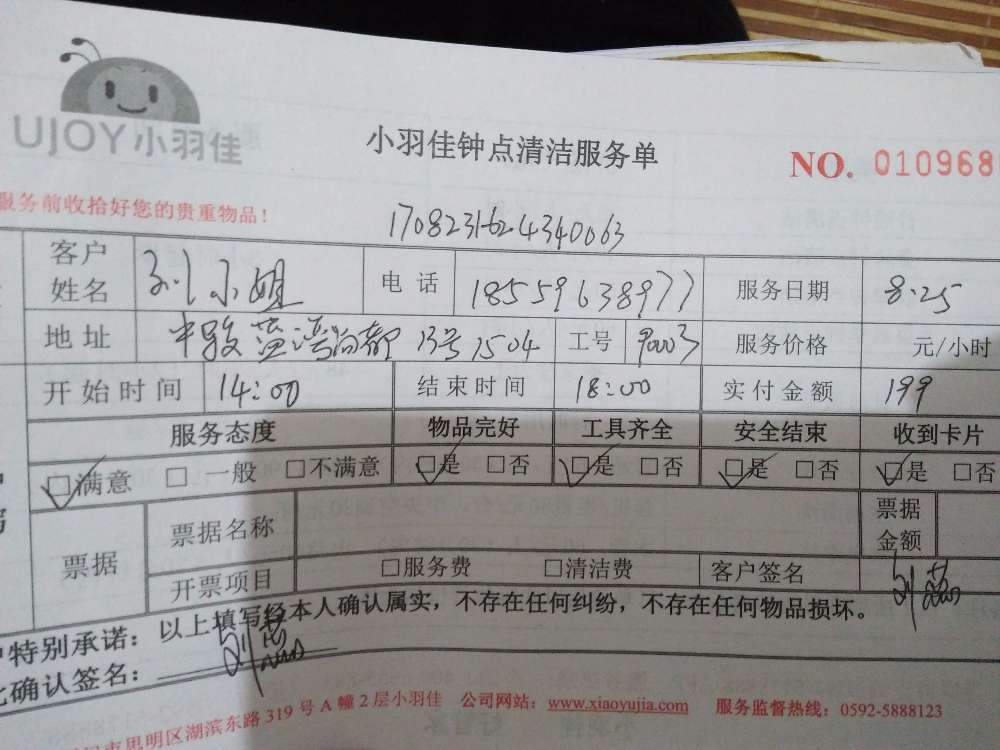 UJOY小羽佳
小羽佳钟点清洁服务单
NO. 010968
服务前收拾好您的贵重物品！
1708231624340063
客户姓名 刘小姐 电话 18559638977 服务日期 8.25
地址 中骏蓝湾尚都 13号1504 工号 90003 服务价格 元/小时
开始时间 14:00 结束时间 18:00 实付金额 199
服务态度 物品完好 工具齐全 安全结束 收到卡片
☑满意 □一般 □不满意 ☑是 □否 ☑是 □否 ☑是 □否 ☑是 □否
票据 票据名称 票据金额
开票项目 □服务费 □清洁费 客户签名
特别承诺：以上填写经本人确认属实，不存在任何纠纷，不存在任何物品损坏。
此确认签名：
市思明区湖滨东路319号A幢2层小羽佳 公司网站：www.xiaoyujia.com 服务监督热线：0592-5888123